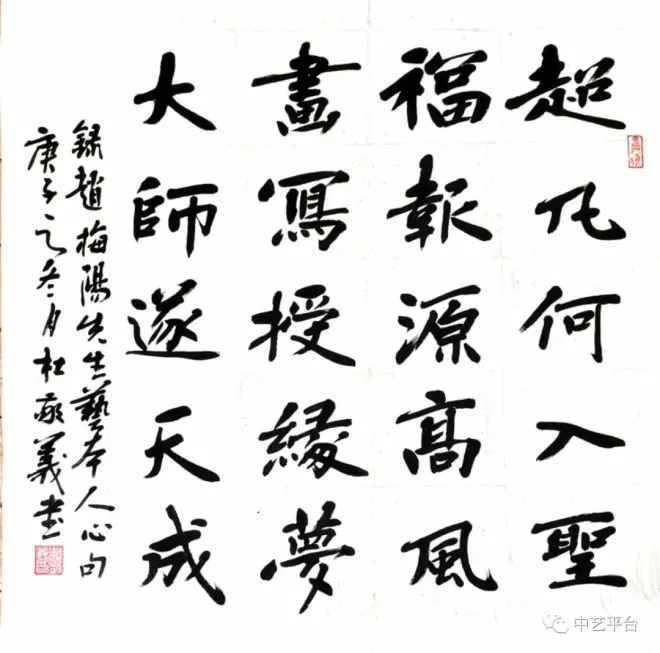 超凡何入聖
福報源髙風
畫寫授緣夢
大師遂天成
録趙梅陽先生藝本人心句
庚子之冬月杜敬義書
中艺平台